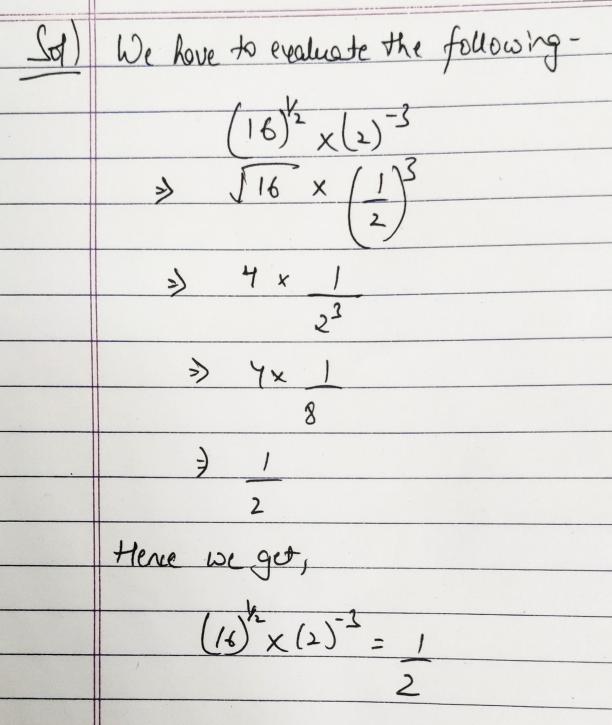 Sol) We have to evaluate the following-
(16)^½ × (2)^-3
⇒ √16 × (1/2)^3
⇒ 4 × 1/2^3
⇒ 4 × 1/8
⇒ 1/2
Hence we get,
(16)^½ × (2)^-3 = 1/2